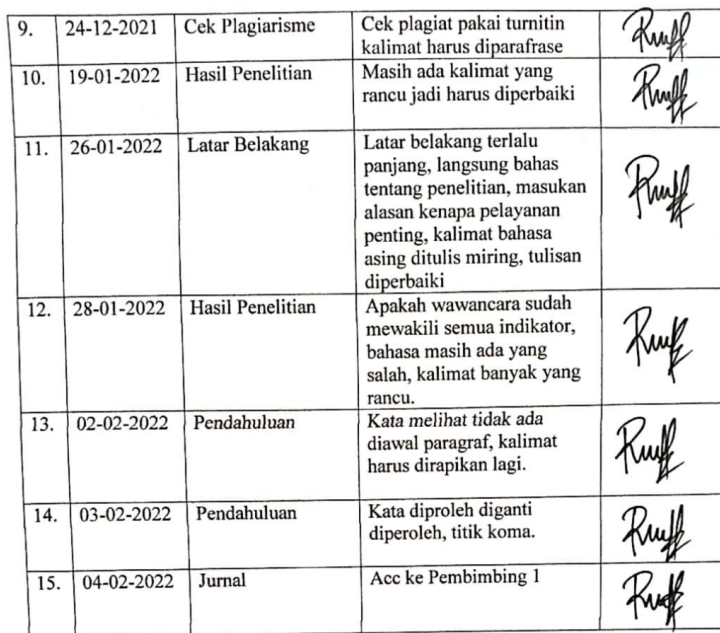 9. 24-12-2021 Cek Plagiarisme Cek plagiat pakai turnitin
kalimat harus diparafrase
10. 19-01-2022 Hasil Penelitian Masih ada kalimat yang
rancu jadi harus diperbaiki
11. 26-01-2022 Latar Belakang Latar belakang terlalu
panjang, langsung bahas
tentang penelitian, masukan
alasan kenapa pelayanan
penting, kalimat bahasa
asing ditulis miring, tulisan
diperbaiki
12. 28-01-2022 Hasil Penelitian Apakah wawancara sudah
mewakili semua indikator,
bahasa masih ada yang
salah, kalimat banyak yang
rancu.
13. 02-02-2022 Pendahuluan Kata melihat tidak ada
diawal paragraf, kalimat
harus dirapikan lagi.
14. 03-02-2022 Pendahuluan Kata diproleh diganti
diperoleh, titik koma.
15. 04-02-2022 Jurnal Acc ke Pembimbing 1